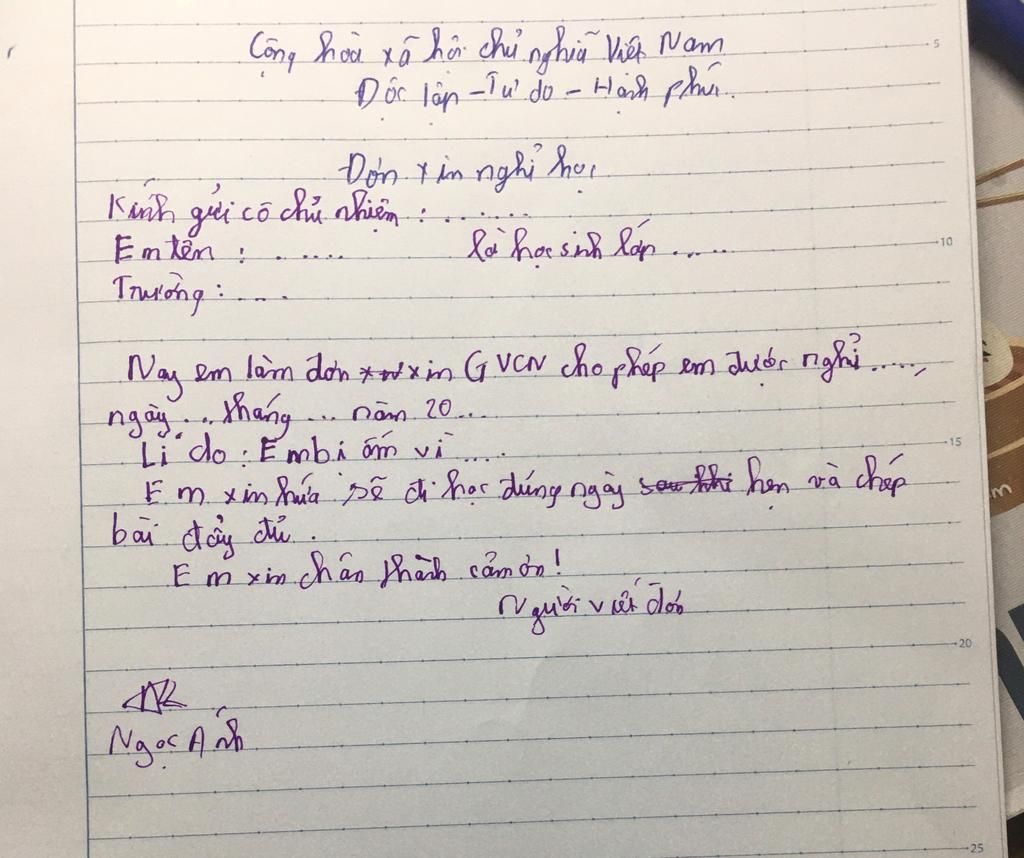 Cộng hoà xã hội chủ nghĩa Việt Nam
Độc lập - Tự do - Hạnh phúc.
Đơn xin nghỉ học
Kính gửi cô chủ nhiệm : .......
Em tên : ...... là học sinh lớp ......
Trường : ....
Nay em làm đơn xin GVCN cho phép em được nghỉ .....,
ngày ... tháng ... năm 20...
Lí do : Em bị ốm vì .....
Em xin hứa sẽ đi học đúng ngày sau khi hẹn và chép
bài đầy đủ .
Em xin chân thành cảm ơn !
Người viết đơn
Ngọc Ánh
5
10
15
20
25